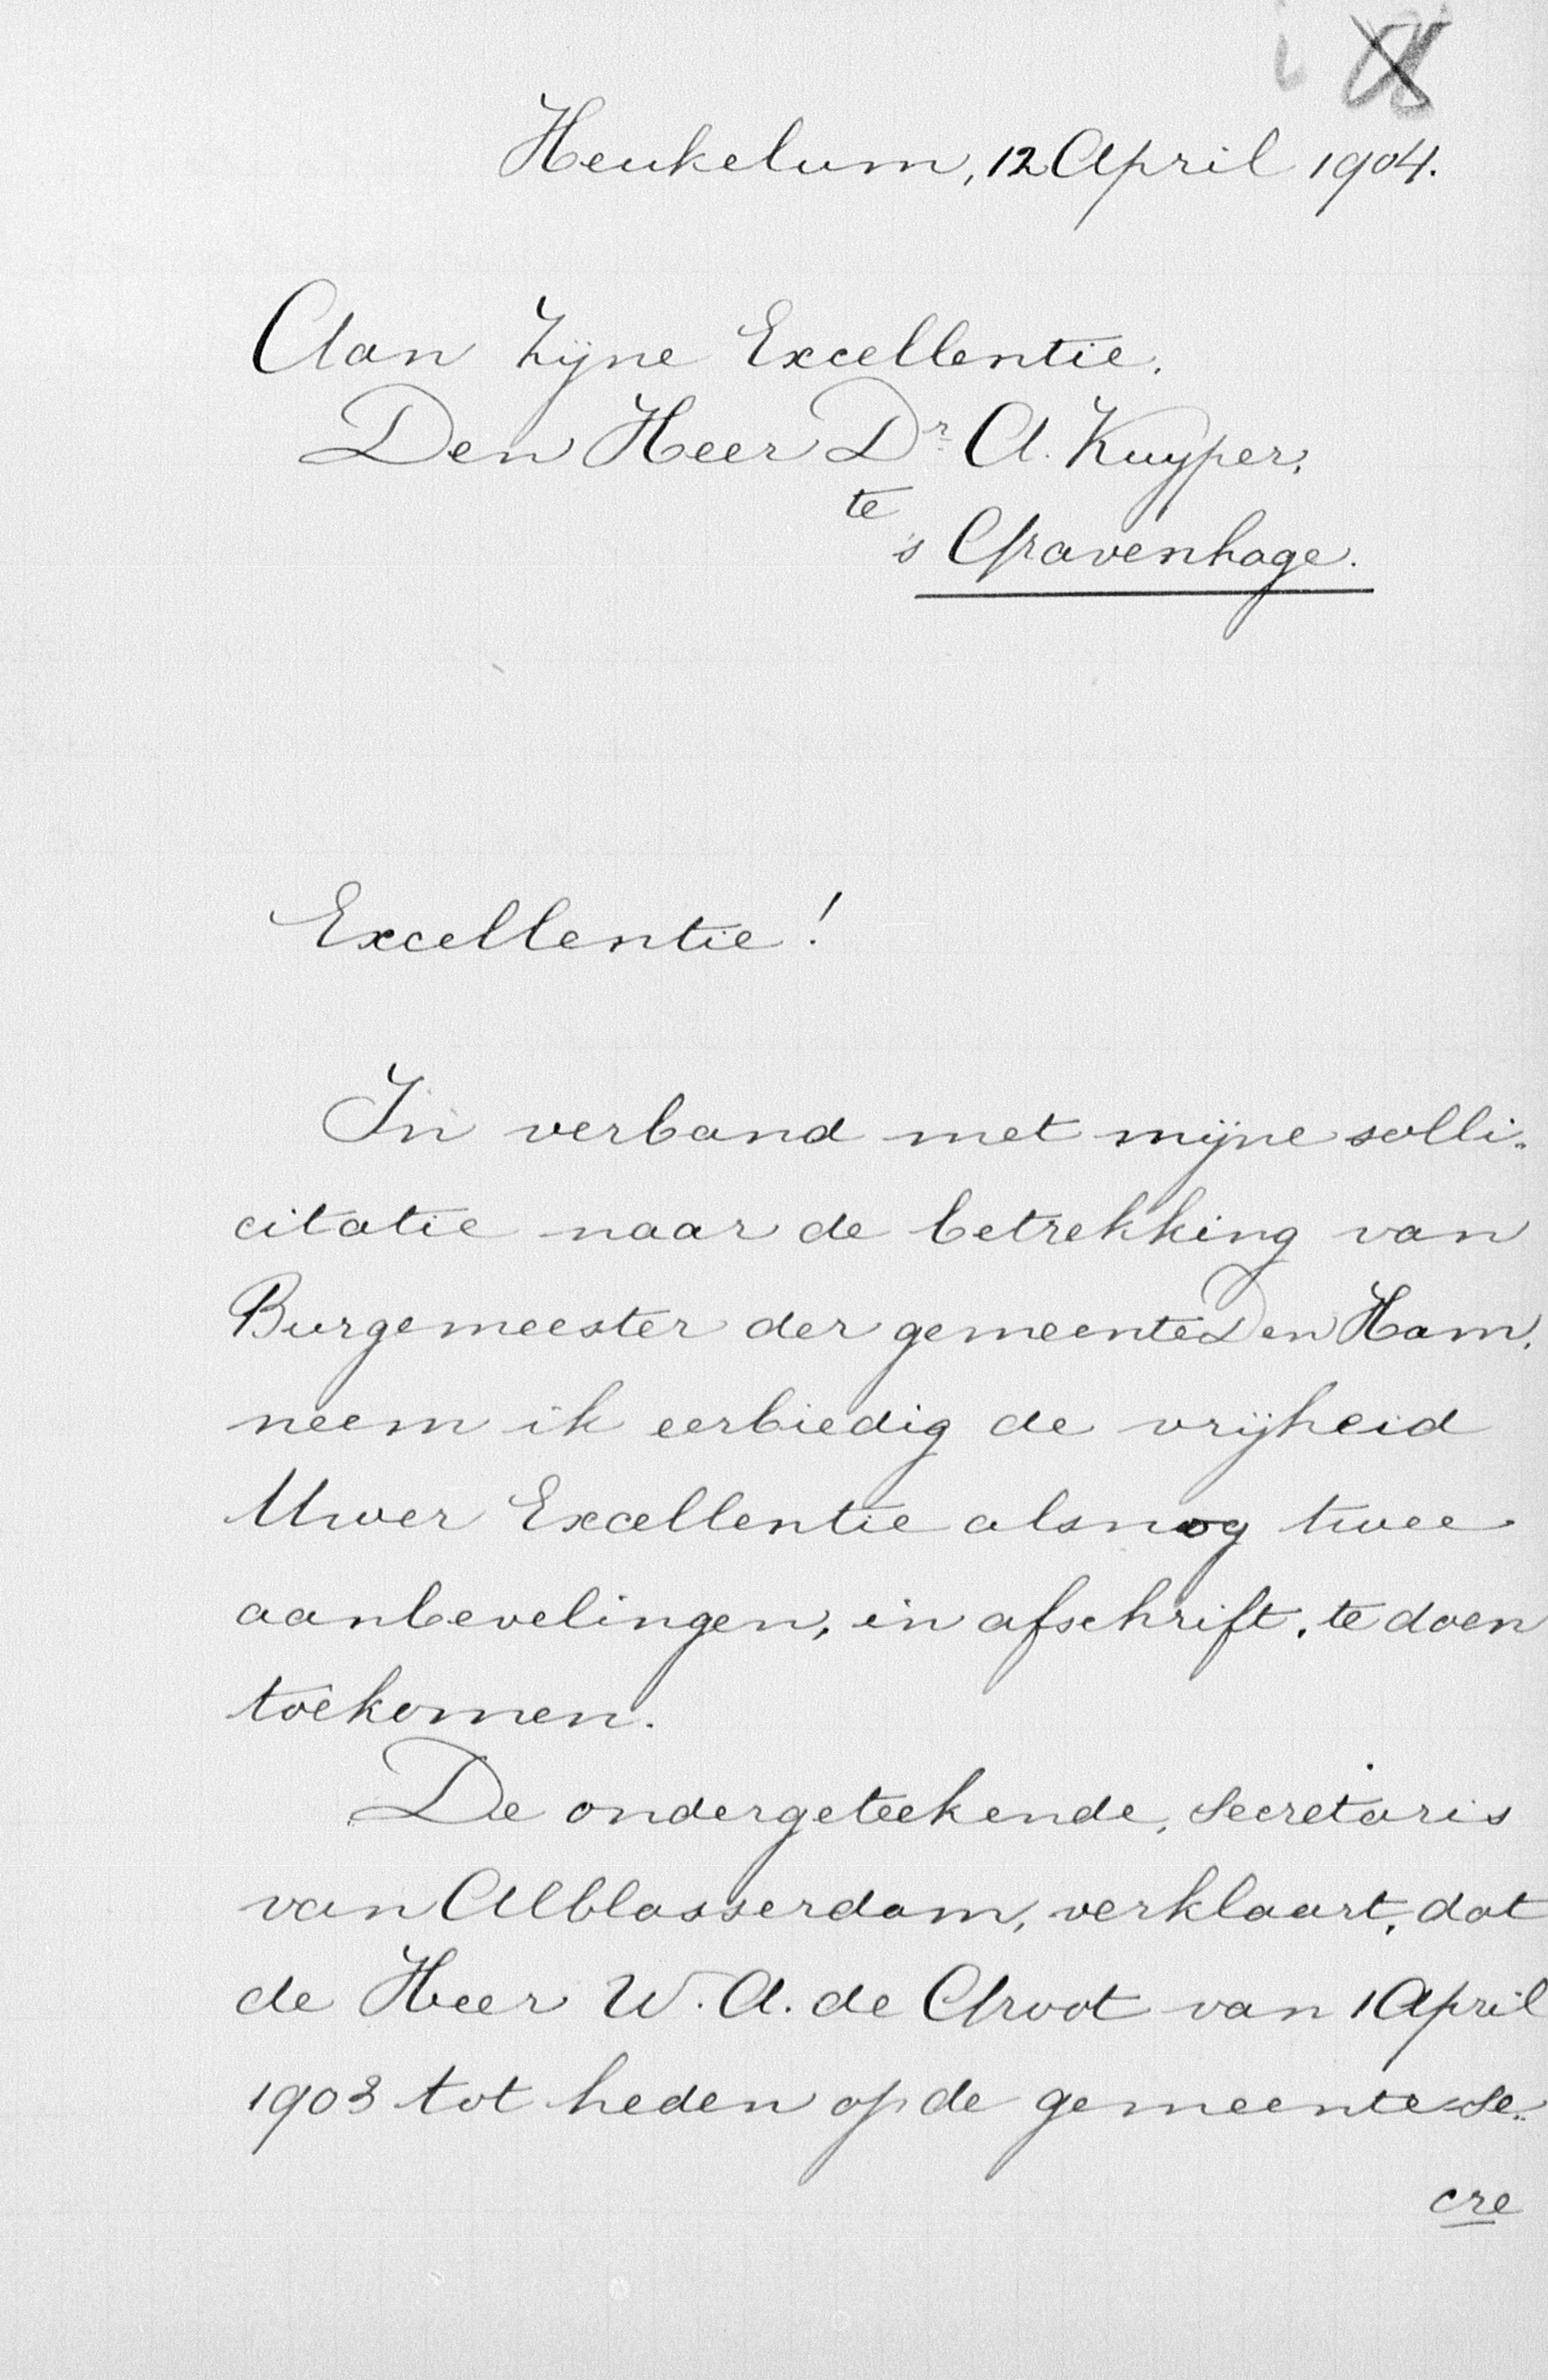 Heukelum, 12 April 1904.
Aan Zijne Excellentie.
Den Heer Dr. A. Kuyper,
te
's Gravenhage.
Excellentie!
In verband met mijne solli-
citatie naar de betrekking van
Burgemeester der gemeente Den Ham,
neem ik eerbiedig de vrijheid
Uwer Excellentie alsnog twee
aanbevelingen, in afschrift, te doen
toekomen.
De ondergeteekende, Secretaris
van Alblasserdam, verklaart, dat
de Heer W. A. de Groot van 1 April
1903 tot heden op de gemeente-se-
cre